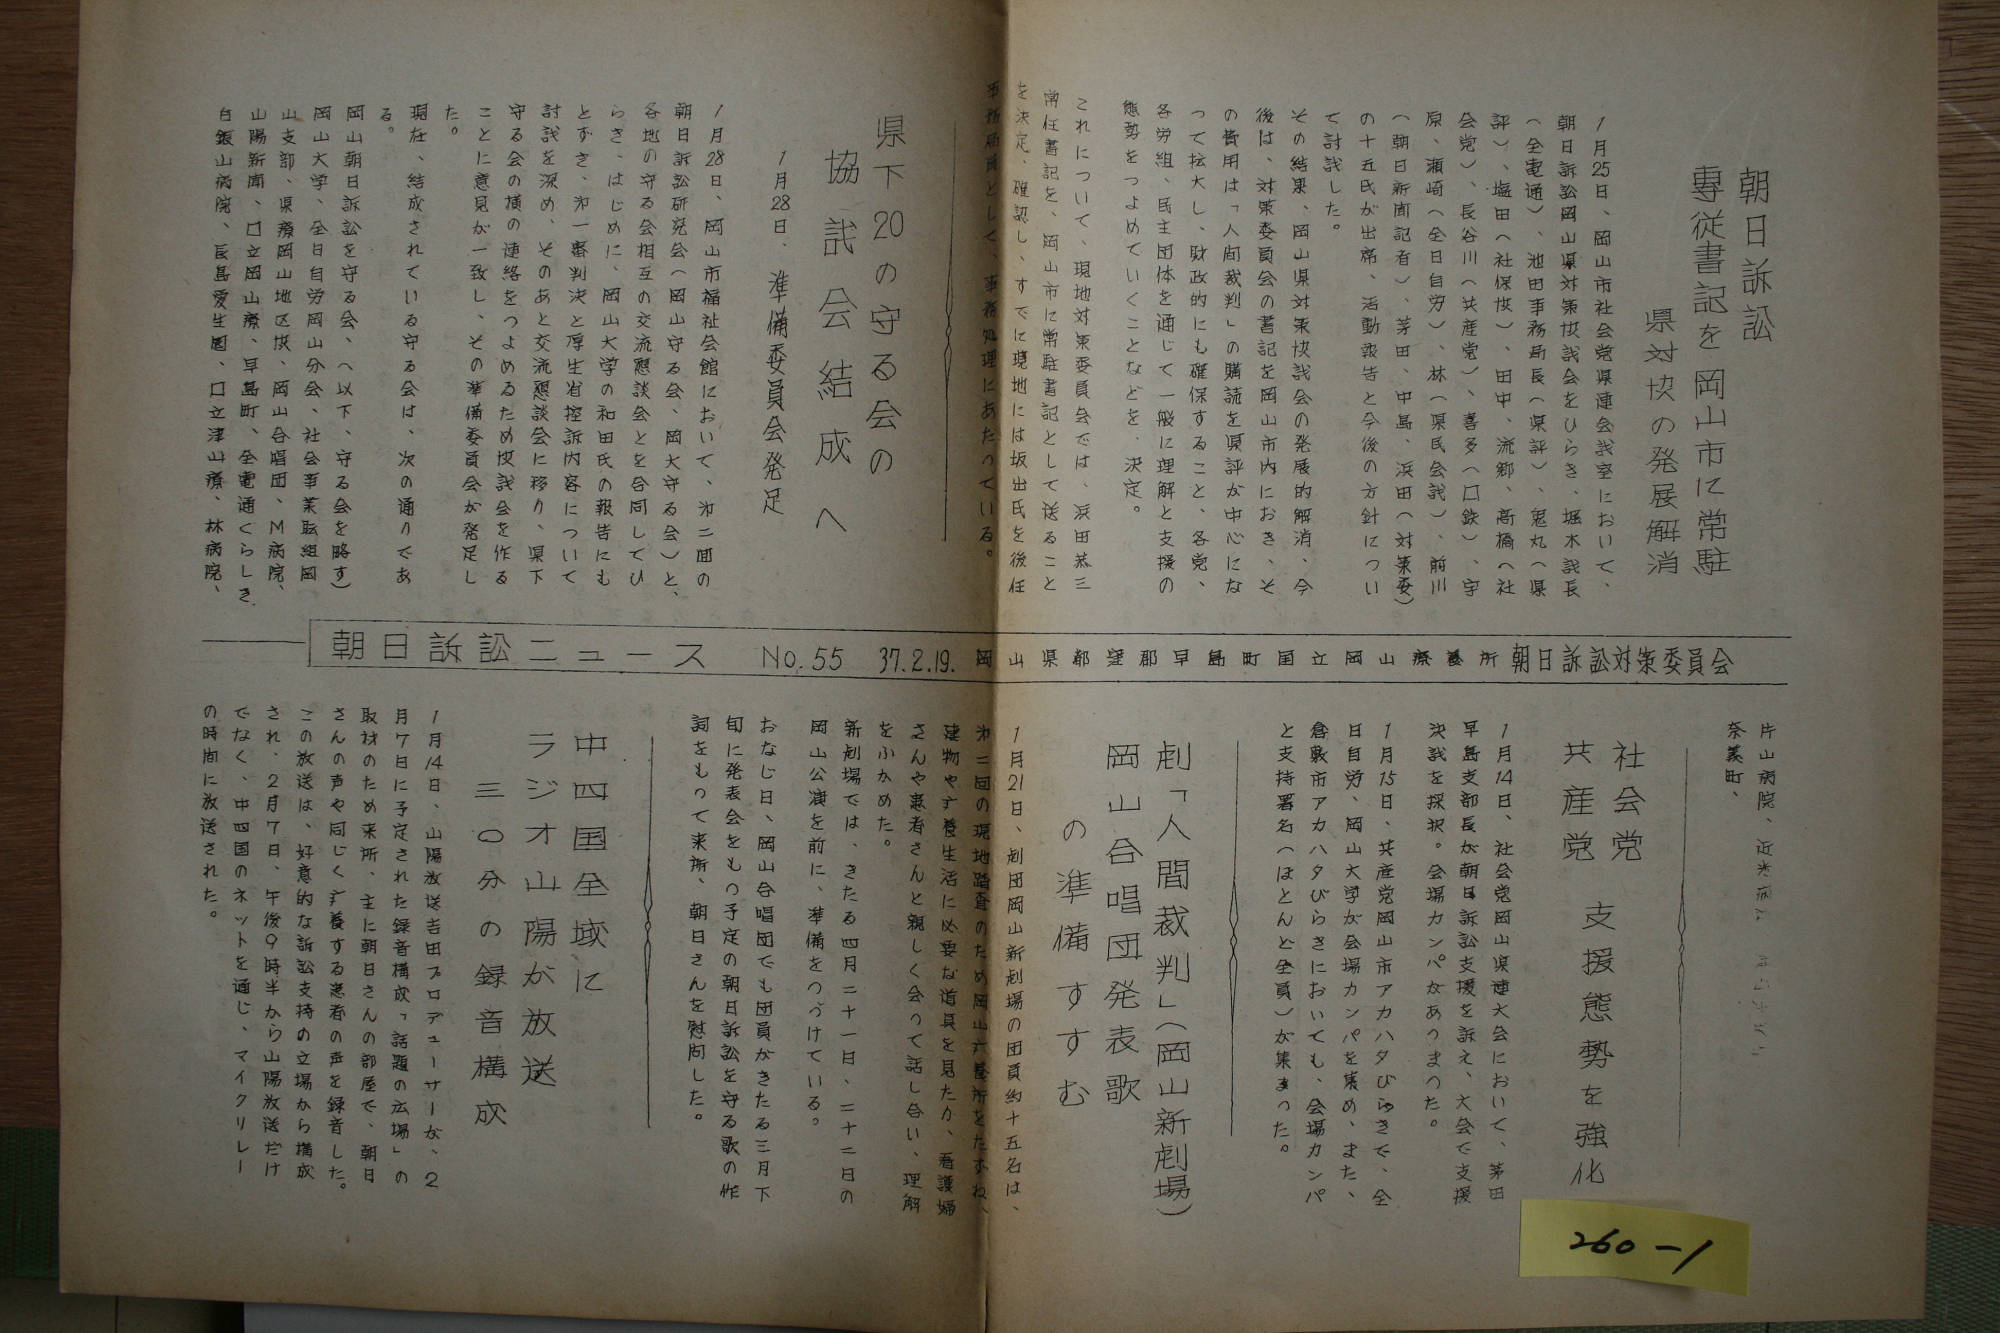 朝日訴訟
専従書記を岡山市に常駐
県対协の発展解消
1月25日、岡山市社会党県連会議室において、
朝日訴訟岡山県対策协議会をひらき、堀木議長
(全電通)、池田事務局長(県評)、鬼丸(県
評)、塩田(社保协)、田中、流郷、高橋(社
会党)、長谷川(共産党)、喜多(口鉄)、宇
原、瀬崎(全日自労)、林(県民会議)、前川
(朝日新聞記者)、茅田、中島、浜田(対策委)
の十五氏が出席、活動報告と今後の方針につい
て討議した。
その結果、岡山県対策协議会の発展的解消、今
後は、対策委員会の書記を岡山市内におき、そ
の費用は「人间裁判」の購読を県評が中心にな
って拡大し、財政的にも確保すること、各党、
各労組、民主団体を通じて一般に理解と支援の
態勢をつよめていくことなどを、決定。
これについて、現地対策委員会では、浜田恭三
常任書記を、岡山市に常駐書記として送ること
を決定、確認し、すでに現地には坂出氏を後任
事務局員として、事務処理にあたっている。
県下20の守る会の
協議会結成へ
1月28日、準備委員会発足
1月28日、岡山市福祉会館において、第二回の
朝日訴訟研究会(岡山守る会、岡大守る会)と、
各地の守る会相互の交流懇談会とを合同してひ
らき、はじめに、岡山大学の和田氏の報告にも
とずき、第一審判決と厚生省控訴内容について
討議を深め、そのあと交流懇談会に移り、県下
守る会の横の連絡をつよめるため协議会を作る
ことに意見が一致し、その準備委員会が発足し
た。
現在、結成されている守る会は、次の通りであ
る。
岡山朝日訴訟を守る会、(以下、守る会を略す)
岡山大学、全日自労岡山分会、社会事業職組岡
山支部、県療岡山地区协、岡山合唱団、M病院、
山陽新聞、口立岡山療、早島町、全電通くらしき、
白銀山病院、長島愛生園、口立津山療、林病院、
朝日訴訟ニュース No.55 37.2.19. 岡山県都窪郡早島町国立岡山療養所 朝日訴訟対策委員会
片山病院、近
奈義町、
社会党
共産党 支援態勢を強化
1月14日、社会党岡山県連大会において、茅田
早島支部長が朝日訴訟支援を訴え、大会で支援
決議を採択。会場カンパがあつまった。
1月15日、共産党岡山市アカハタびらきで、全
日自労、岡山大学が会場カンパを集め、また、
倉敷市アカハタびらきにおいても、会場カンパ
と支持署名(ほとんど全員)が集まった。
劇「人間裁判」(岡山新劇場)
岡山合唱団発表歌
の準備すすむ
1月21日、劇団岡山新劇場の団員約十五名は、
第二回の現地踏査のため岡山療養所をたずね、
建物や療養生活に必要な道具を見たり、看護婦
さんや患者さんと親しく会って話し合い、理解
をふかめた。
新劇場では、きたる四月二十一日、二十二日の
岡山公演を前に、準備をつづけている。
おなじ日、岡山合唱団でも団員がきたる三月下
旬に発表会をもつ予定の朝日訴訟を守る歌の作
詞をもって来所、朝日さんを慰问した。
中四国全域に
ラジオ山陽が放送
三〇分の録音構成
1月14日、山陽放送吉田プロデューサーが、2
月7日に予定された録音構成「話題の広場」の
取材のため来所、主に朝日さんの部屋で、朝日
さんの声や同じく療養する患者の声を録音した。
この放送は、好意的な訴訟支持の立場から構成
され、2月7日、午後9時半から山陽放送だけ
でなく、中四国のネットを通じ、マイクリレー
の時間に放送された。
260-1